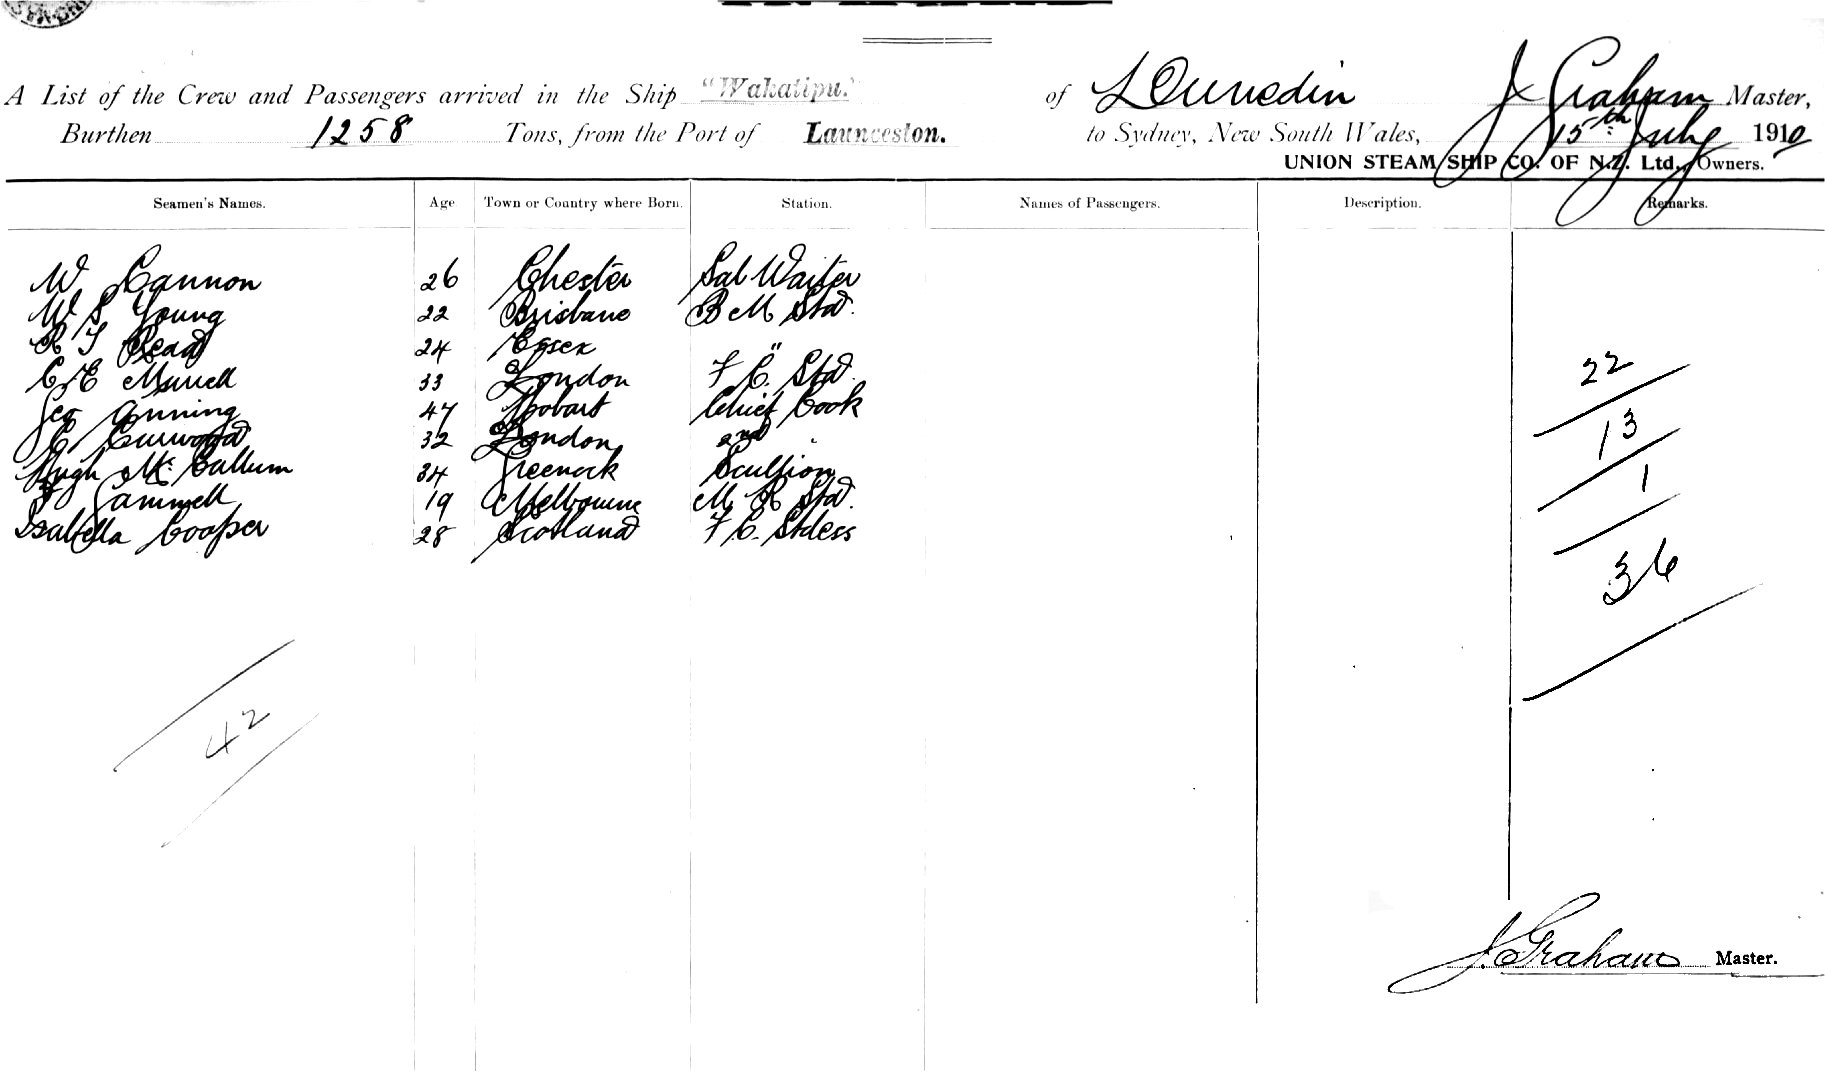 A List of the Crew and Passengers arrived in the Ship "Wakatipu." of Dunedin J Graham Master,
Burthen 1258 Tons, from the Port of Launceston. to Sydney, New South Wales, 15th July 1910
UNION STEAM SHIP CO. OF N.Z. Ltd., Owners.
Seamen's Names. Age Town or Country where Born. Station. Names of Passengers. Description. Remarks.
W Cannon 26 Chester Sal Waiter
W S Young 22 Brisbane B M Std.
R J Read 24 Essex "
C E Murrell 33 London F C. Std. 22
Geo Anning 47 Hobart Chief Cook
C Curwood 32 London 2nd 13
Hugh McCallum 34 Greenock Scullion
Gammell 19 Melbourne M R Std. 1
Isabella Cooper 28 Scotland F C. Stdess
36
42
J. Graham Master.